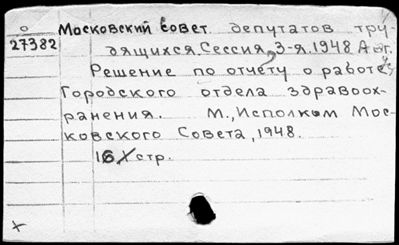 О
27382
Московский совет депутатов тру-
дящихся. Сессия, 3-я. 1948 Авг.
Решение по отчету о работе
Городского отдела здравоох-
ранения. М., Исполком Мос-
ковского Совета, 1948.
16 стр.